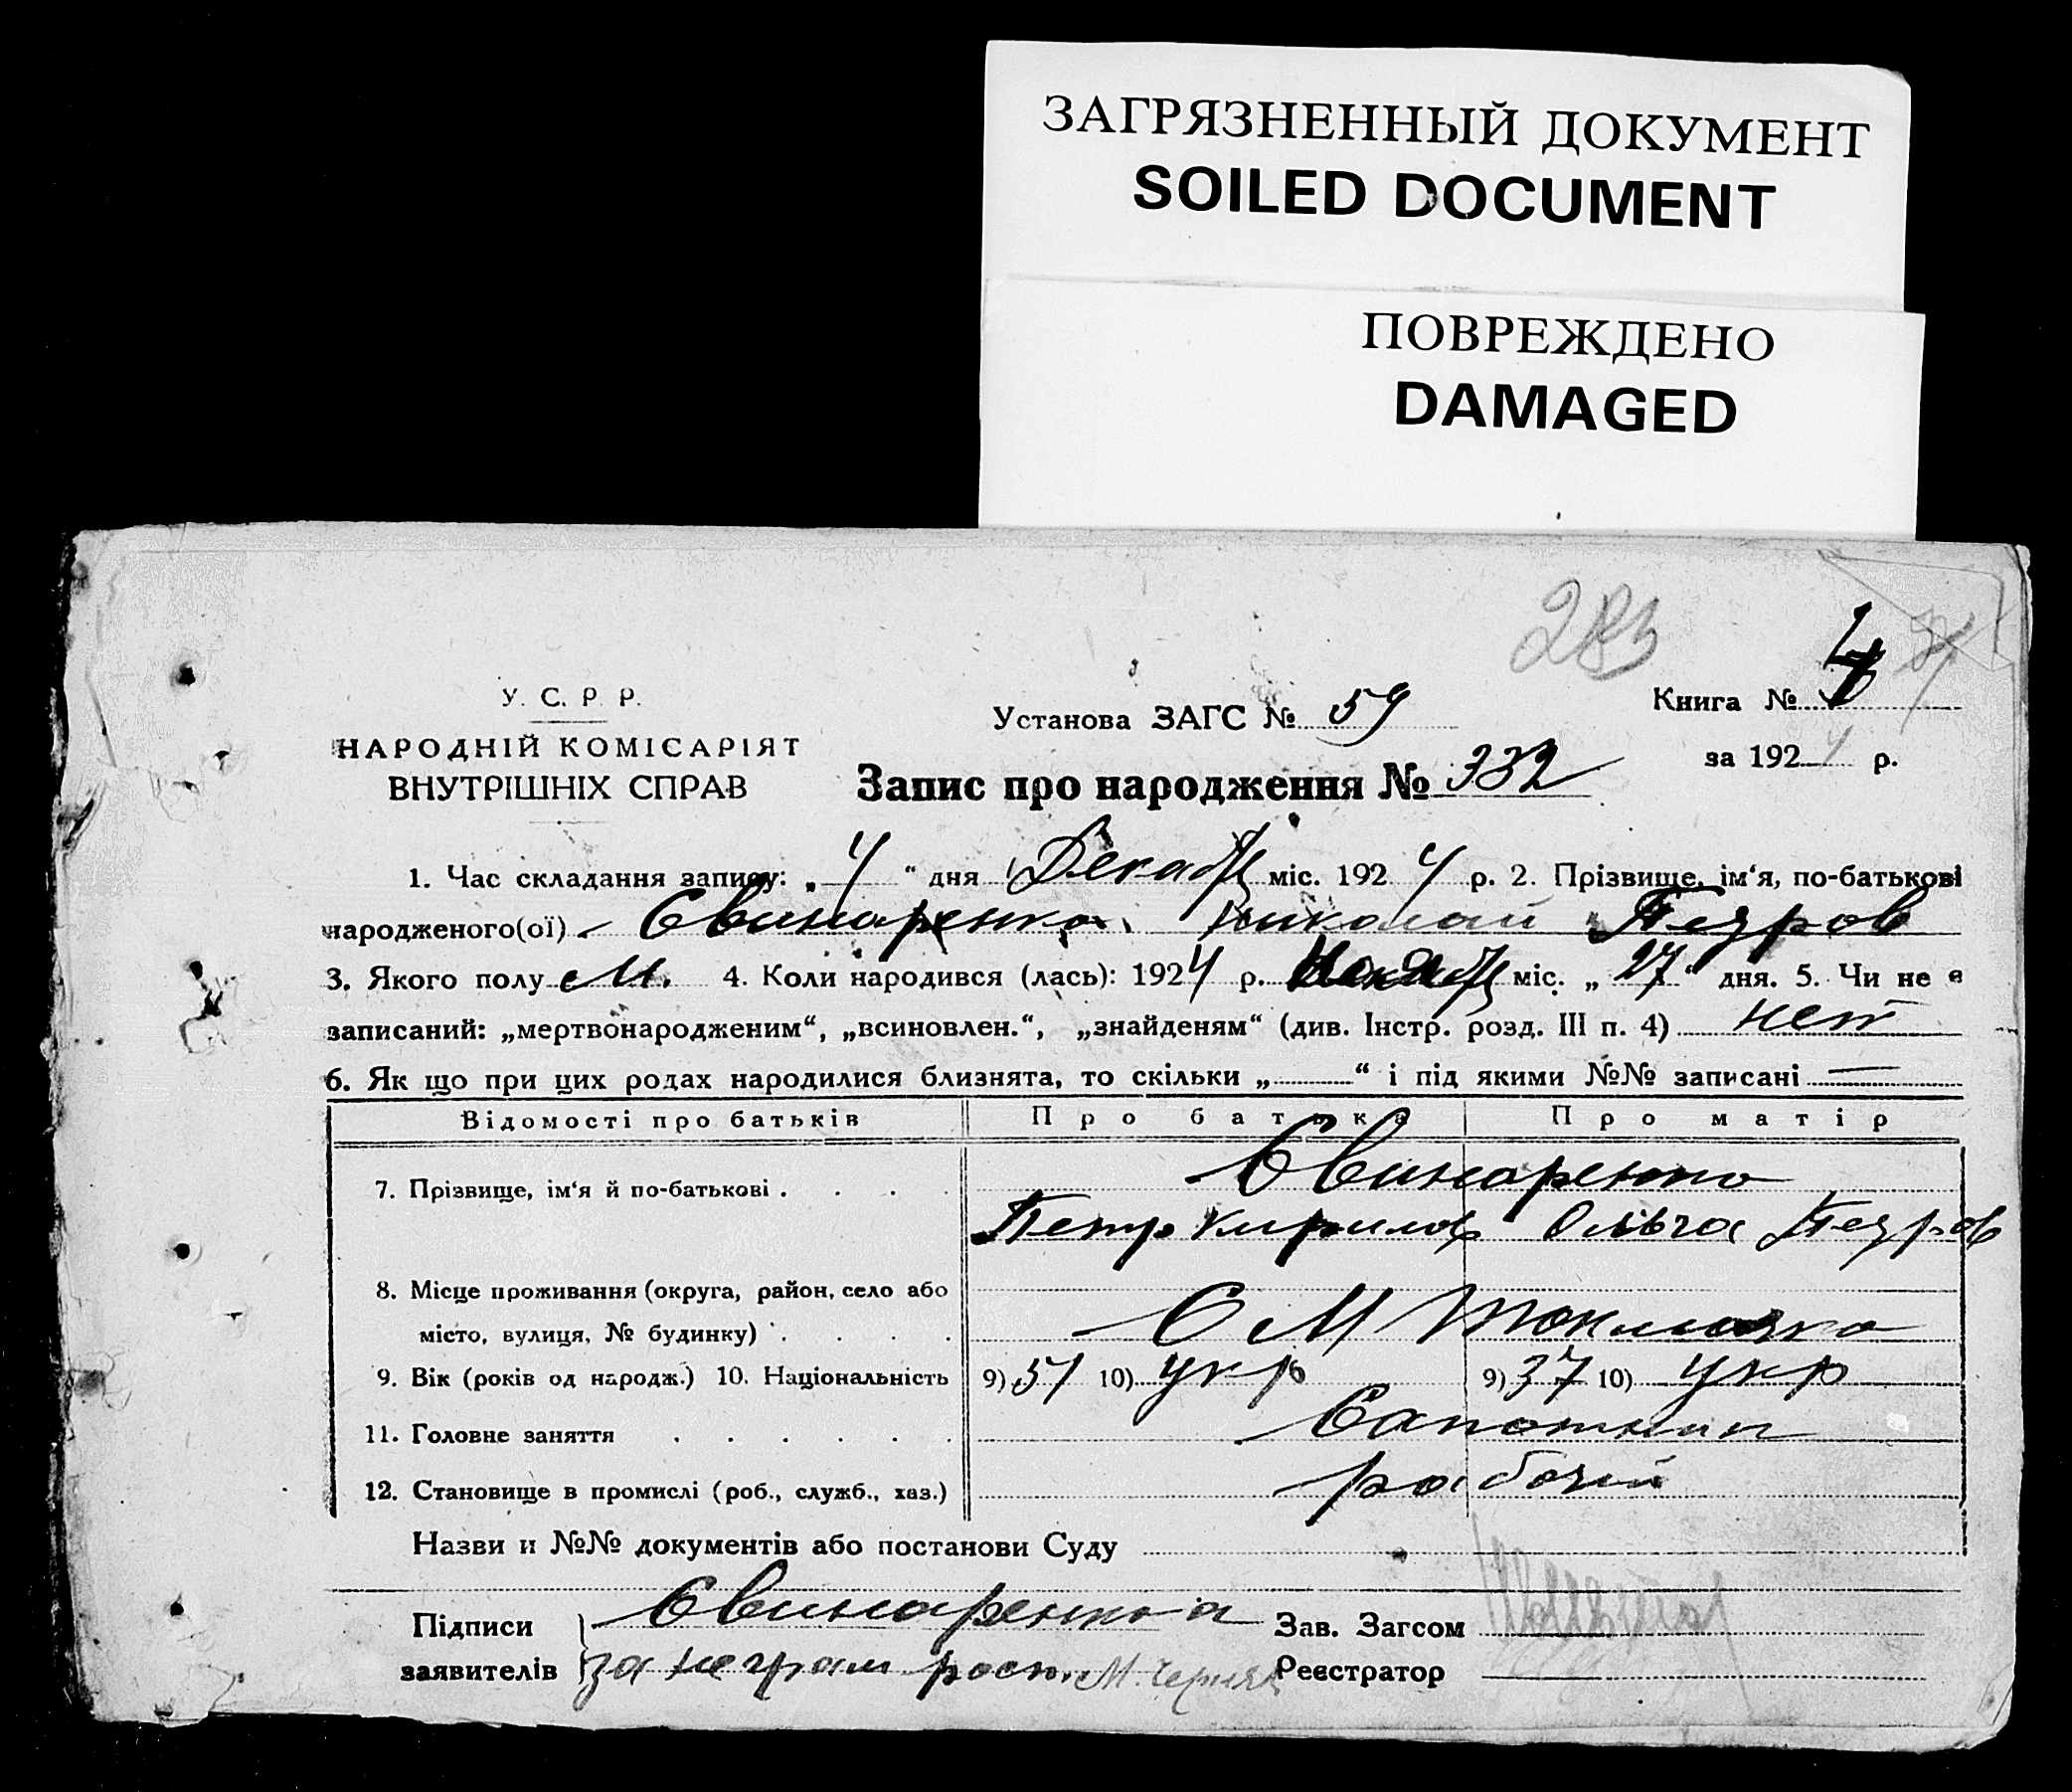 ЗАГРЯЗНЕННЫЙ ДОКУМЕНТ
SOILED DOCUMENT
ПОВРЕЖДЕНО
DAMAGED
283
У. С. Р. Р.
НАРОДНІЙ КОМІСАРІЯТ
ВНУТРІШНІХ СПРАВ
Установа ЗАГС № 59
Книга № 4
за 1924 р.
Запис про народження № 332
1. Час складання запису: „4“ дня Декабр міс. 1924 р. 2. Прізвище, ім‘я, по-батькові
народженого(ої) Свинаренко Николай Петров
3. Якого полу М. 4. Коли народився (лась): 1924 р. Ноябр міс. „27“ дня. 5. Чи не є
записаний: „мертвонародженим“, „всиновлен.“, „знайденям“ (див. Інстр. розд. III п. 4) нет
6. Як що при цих родах народилися близнята, то скільки „ “ і під якими №№ записані —
Відомості про батьків Про батька Про матір
7. Прізвище, ім‘я й по-батькові . . . . Свинаренко
Петр Кирилов Ольга Петров
8. Місце проживання (округа, район, село або
місто, вулиця, № будинку) . . . . С М Токмачка
9. Вік (років од народж.) 10. Національність 9) 51 10) укр 9) 37 10) укр
11. Головне заняття . . . . . . Сапожник
12. Становище в промислі (роб., служб., хаз.) рабочий
Назви и №№ документів або постанови Суду
Підписи Свинаренкоа Зав. Загсом
заявителів за неграм росп. М. Черняк Реєстратор